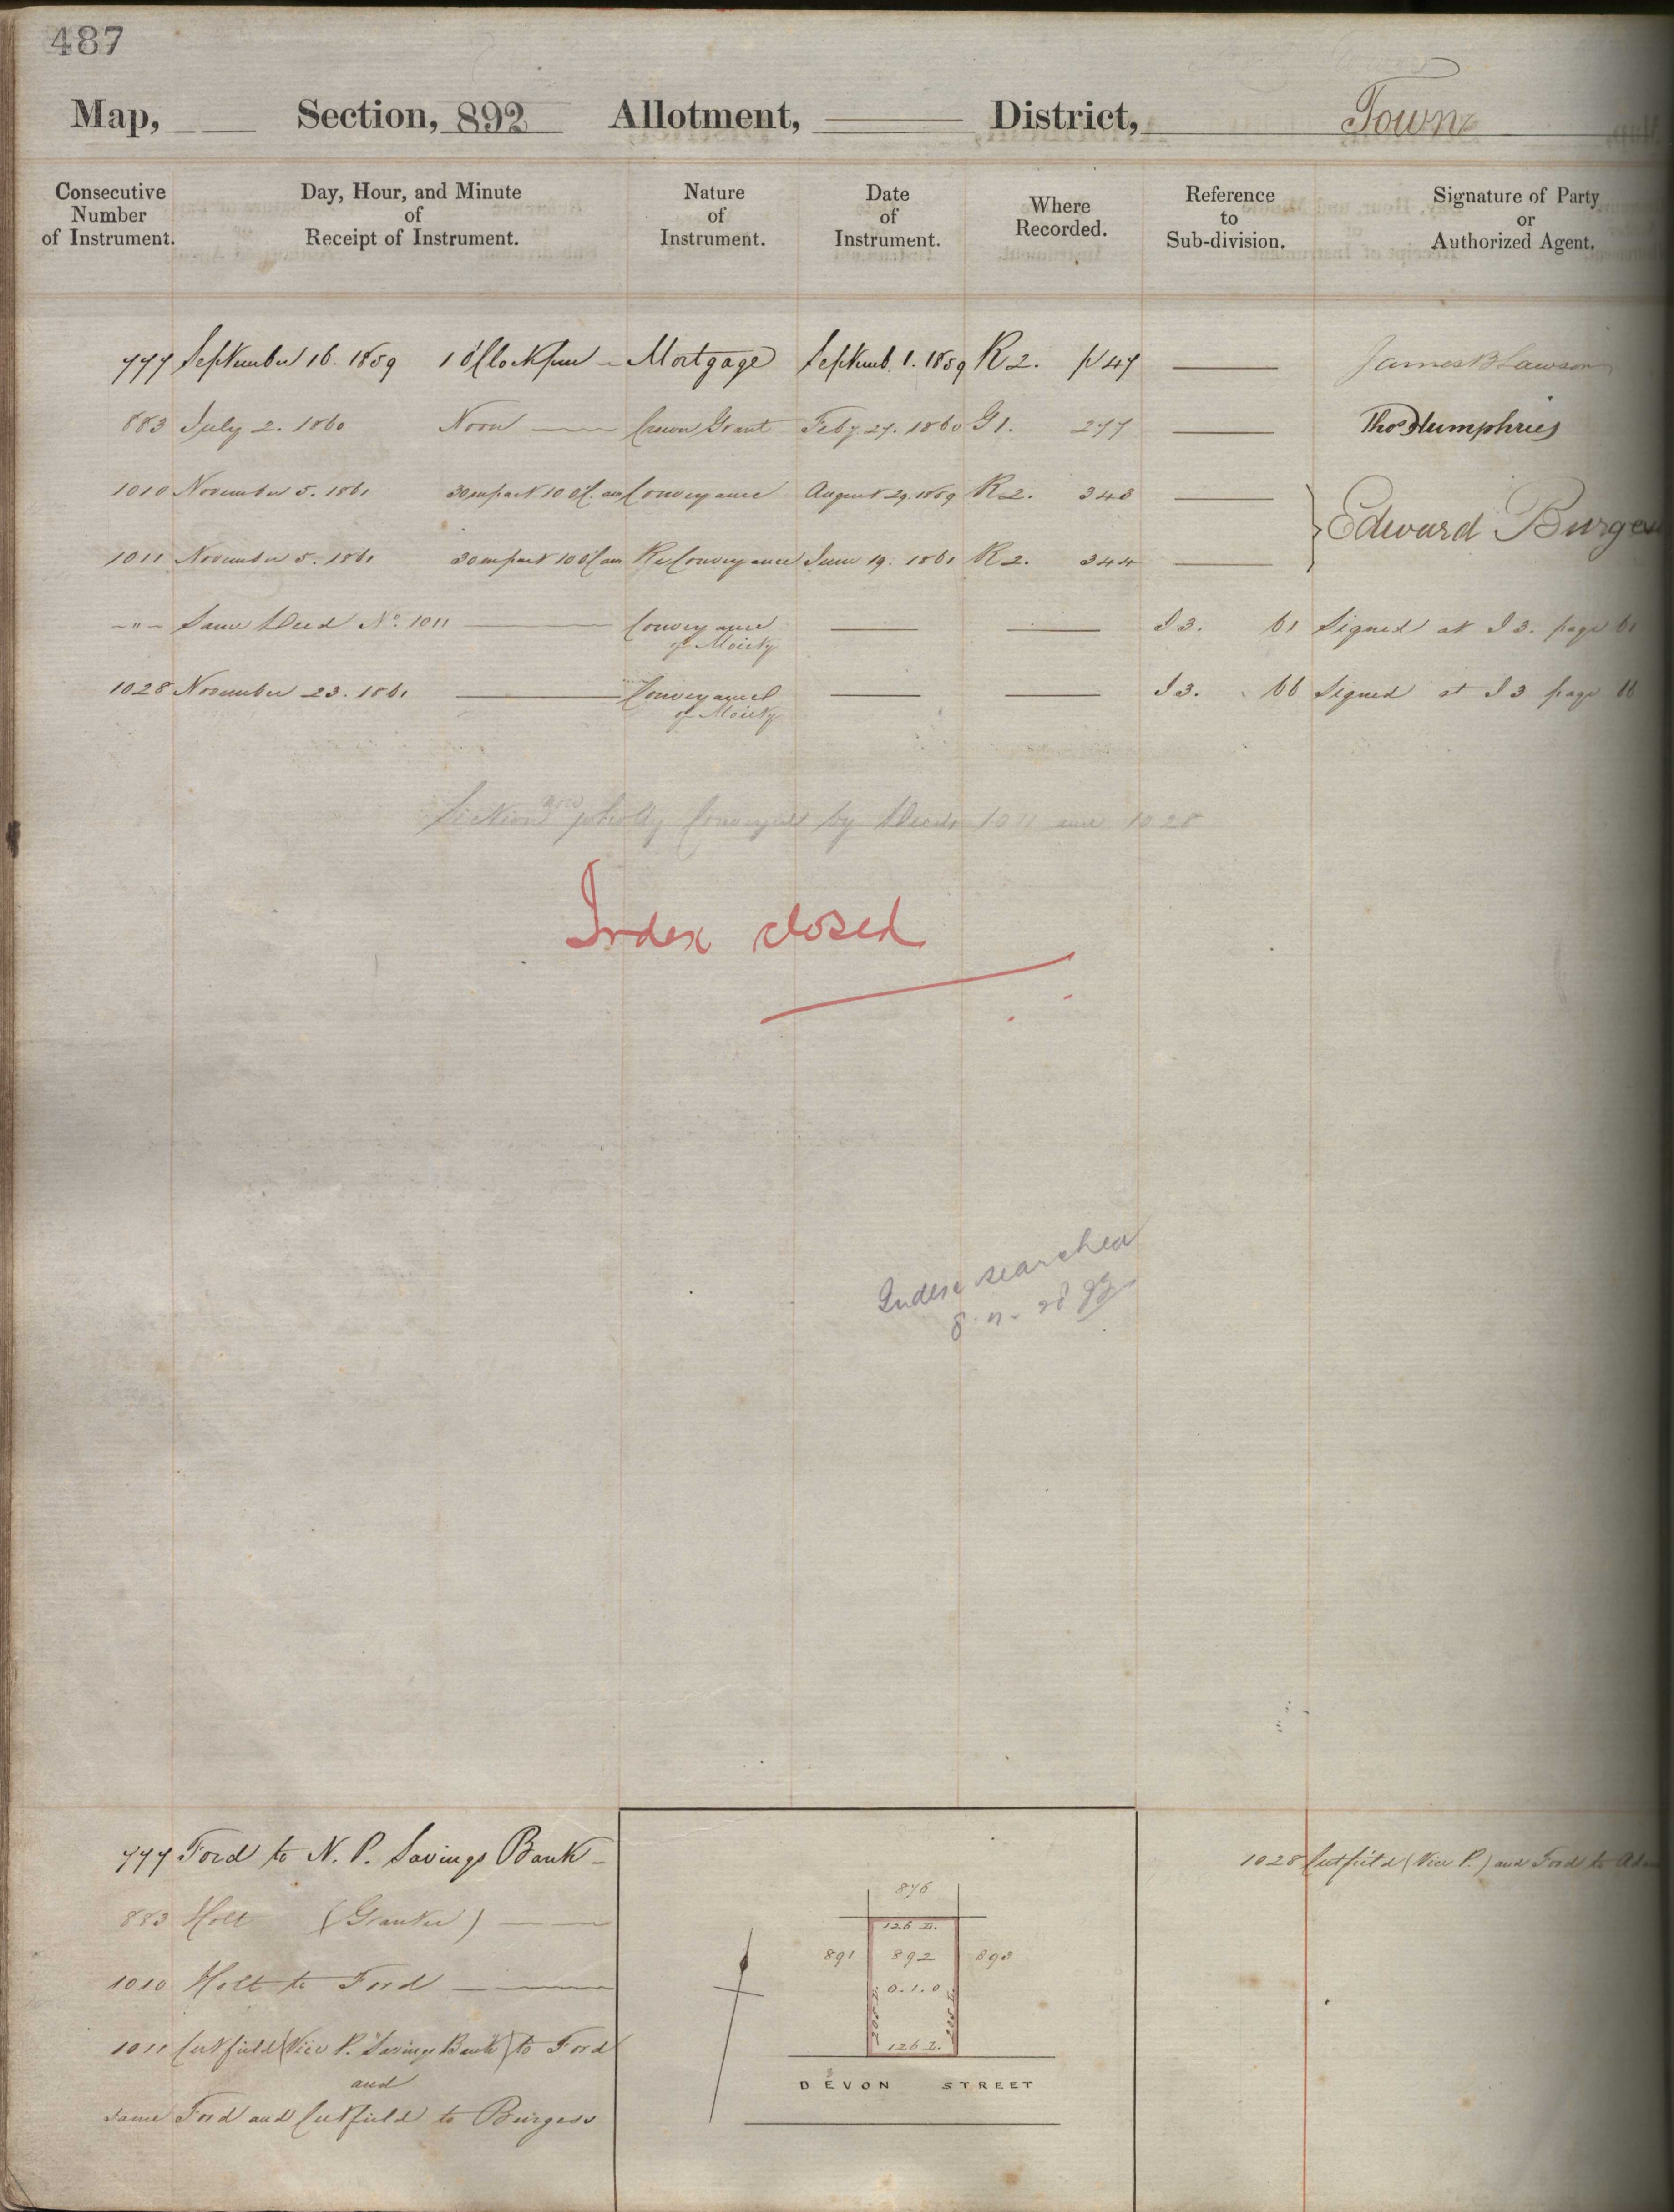 487
Map, Section, 892 Allotment, District, Town
Consecutive Number of Instrument.
Day, Hour, and Minute of Receipt of Instrument.
Nature of Instrument.
Date of Instrument.
Where Recorded.
Reference to Sub-division.
Signature of Party or Authorized Agent.
777 September 16. 1859 1 O'Clock pm Mortgage Septemb. 1. 1859 R 2. p 47 James B Lawson
883 July 2. 1860 Noon Crown Grant Feby 27. 1860 G 1. 277 Thos Humphries
1010 November 5. 1861 30 m past 10 O'C. am Conveyance August 29. 1859 R 2. 343
Edward Burgess
1011 November 5. 1861 30 m past 10 O'C am ReConveyance June 19. 1861 R 2. 344
-"- Same Deed No. 1011 Conveyance of Moiety I 3. 61 Signed at I 3. page 61
1028 November 23. 1861 Conveyance of Moiety I 3. 66 Signed at I 3 page 66
Section now wholly Conveyed by Deeds 1011 and 1028
Index closed
Index searched
777 Ford to N. P. Savings Bank
883 Holt (Grantee)
1010 Holt to Ford
1011 Cutfield (Vice P. Savings Bank) to Ford
and
same Ford and Cutfield to Burgess
876
126 L.
891 892 893
0.1.0
205 L. 205 L.
126 L.
DEVON STREET
1028 Cutfield (Vice P.) and Ford to